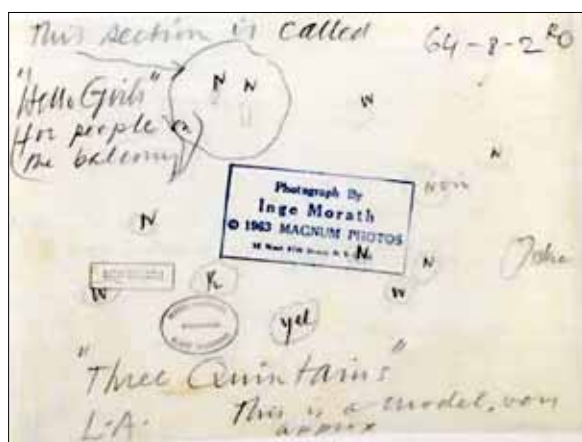 This section is called
64-8-2 RO
"Hello Girls"
for people on
the balcony
N N
W
N
N
Photograph By
Inge Morath
© 1963 MAGNUM PHOTOS
N
N
W
W
yel
"Three Quintains"
L.A.
This is a model, von
approx